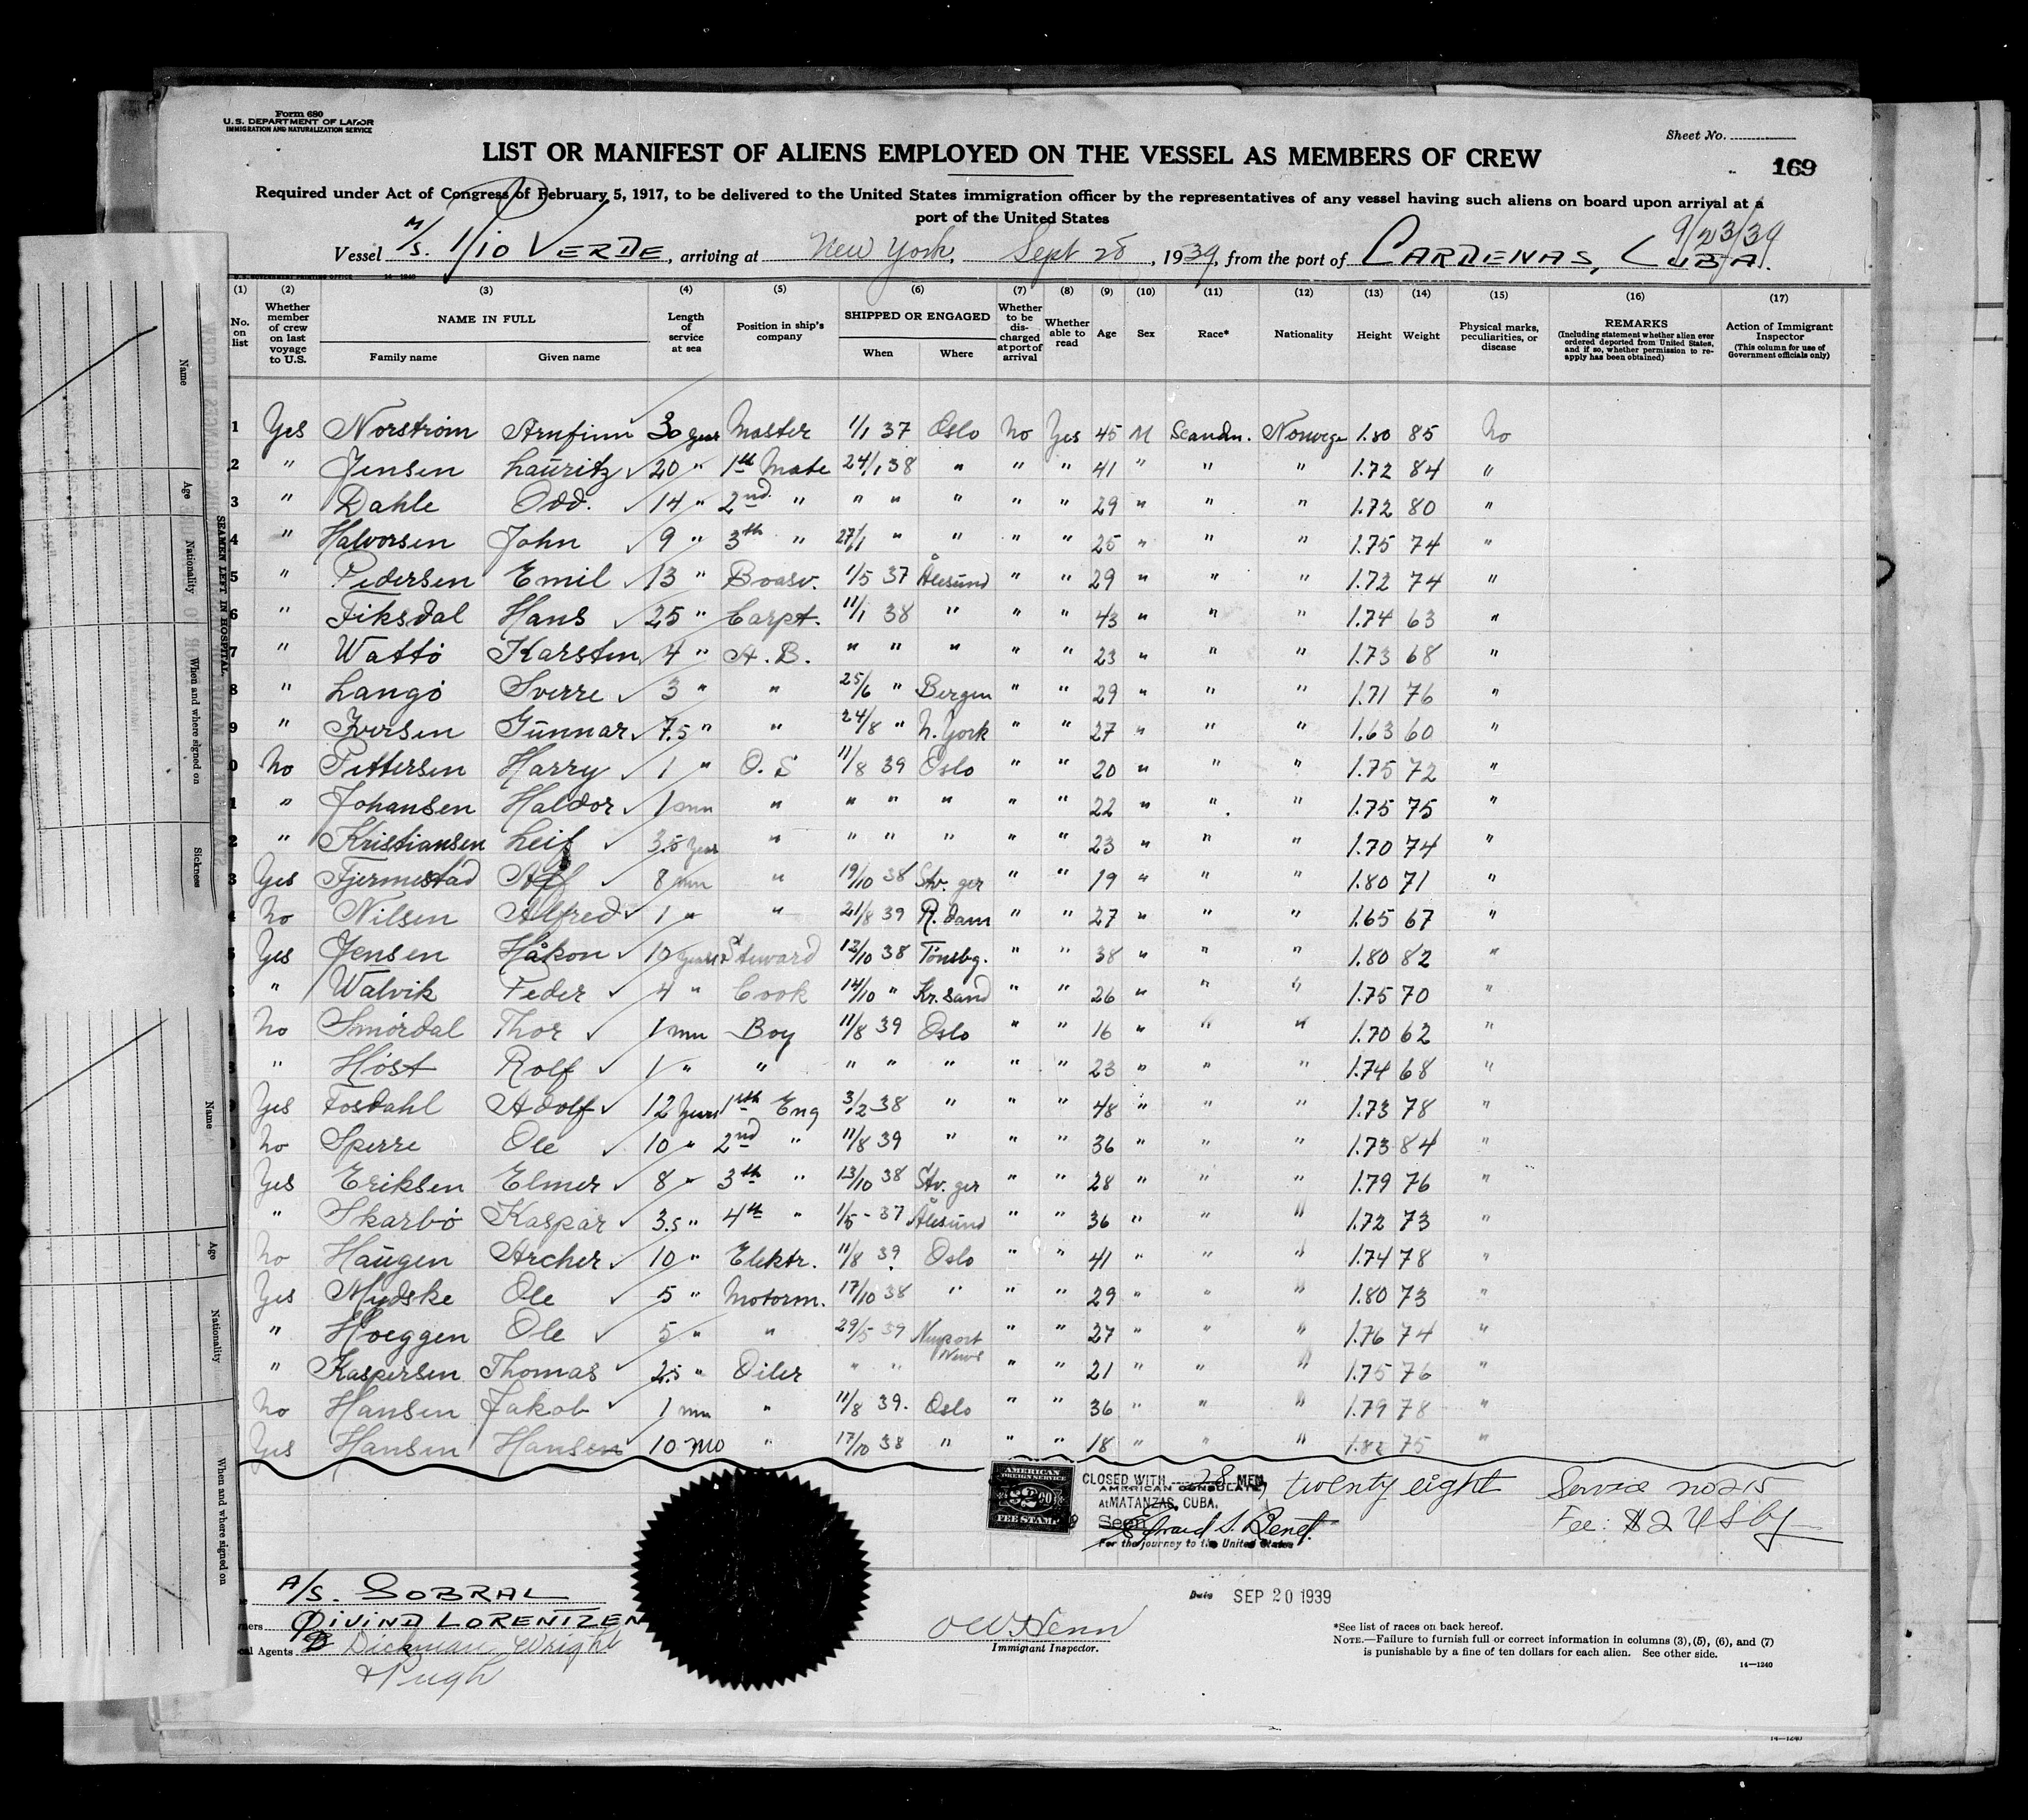 Form 680
U. S. DEPARTMENT OF LABOR
IMMIGRATION AND NATURALIZATION SERVICE
Sheet No.
LIST OR MANIFEST OF ALIENS EMPLOYED ON THE VESSEL AS MEMBERS OF CREW
169
Required under Act of Congress of February 5, 1917, to be delivered to the United States immigration officer by the representatives of any vessel having such aliens on board upon arrival at a
port of the United States
9/23/39
Vessel M/S. Rio VERDE, arriving at New York, Sept 28, 1939, from the port of CARDENAS, CUBA.
U. S. GOVERNMENT PRINTING OFFICE 14—1240
(1) (2) (3) (4) (5) (6) (7) (8) (9) (10) (11) (12) (13) (14) (15) (16) (17)
No. on list Whether member of crew on last voyage to U.S. NAME IN FULL Family name Given name Length of service at sea Position in ship's company SHIPPED OR ENGAGED When Where Whether to be discharged at port of arrival Whether able to read Age Sex Race* Nationality Height Weight Physical marks, peculiarities, or disease REMARKS (Including statement whether alien ever ordered deported from United States, and if so, whether permission to reapply has been obtained) Action of Immigrant Inspector (This column for use of Government officials only)
1 Yes Norstrom Arnfinn 30 year Master 1/1 37 Oslo No Yes 45 M Scandn. Norwege 1.80 85 No
2 " Jensen Lauritz 20 " 1th Mate 24/1 38 " " " 41 " " " 1.72 84 "
3 " Dahle Odd. 14 " 2nd. " " " " " " 29 " " " 1.72 80 "
4 " Halvorsen John 9 " 3th " 27/1 " " " " 25 " " " 1.75 74 "
5 " Pedersen Emil 13 " Boasv. 1/5 37 Ålesund " " 29 " " " 1.72 74 "
6 " Fiksdal Hans 25 " Carpt. 11/1 38 " " " 43 " " " 1.74 63 "
7 " Wattö Karsten 4 " A. B. " " " " " 23 " " " 1.73 68 "
8 " Langö Sverre 3 " " 25/6 " Bergen " " 29 " " " 1.71 76 "
9 " Iversen Gunnar 7.5 " " 24/8 " N. York " " 27 " " " 1.63 60 "
0 No Pettersen Harry 1 " O. S 11/8 39 Oslo " " 20 " " " 1.75 72 "
1 " Johansen Haldor 1 mn " " " " " " 22 " " " 1.75 75 "
2 " Kristiansen Leif 3.5 year " " " " " " 23 " " " 1.70 74 "
3 Yes Fjermestad Alf 8 mn " 19/10 38 Stv. ger " " 19 " " " 1.80 71 "
4 No Nilsen Alfred 1 " " 21/8 39 R. dam " " 27 " " " 1.65 67 "
5 Yes Jensen Håkon 10 years Steward 12/10 38 Tönsbg. " " 38 " " " 1.80 82 "
" Walvik Peder 4 " Cook 14/10 " Kr. sand " " 26 " " " 1.75 70 "
No Smördal Thor 1 mn Boy 11/8 39 Oslo " " 16 " " " 1.70 62 "
" Höst Rolf 1 " " " " " " " 23 " " " 1.74 68 "
Yes Fosdahl Adolf 12 years 1th Eng 3/2 38 " " " 48 " " " 1.73 78 "
No Sperre Ole 10 " 2nd " 11/8 39 " " " 36 " " " 1.73 84 "
Yes Eriksen Elmer 8 " 3th " 13/10 38 Stv. ger " " 28 " " " 1.79 76 "
" Skarbö Kaspar 3.5 " 4th " 1/5 - 37 Ålesund " " 36 " " " 1.72 73 "
No Haugen Archer 10 " Elektr. 11/8 39. Oslo " " 41 " " " 1.74 78 "
Yes Mydske Ole 5 " Motorm. 17/10 38 " " " 29 " " " 1.80 73 "
" Hoeggen Ole 5 " " 29/5 39 Newport News " " 27 " " " 1.76 74 "
" Kaspersen Thomas 2.5 " Oiler " " " " 21 " " " 1.75 76 "
No Hansen Jakob 1 mn " 11/8 39. Oslo " " 36 " " " 1.79 78 "
Yes Hansen Hansen 10 mo " 17/10 38 " " " 18 " " " 1.82 75 "
AMERICAN
FOREIGN SERVICE
$2.00
FEE STAMP
CLOSED WITH 28 MEN, twenty eight
AMERICAN CONSULATE
At MATANZAS, CUBA.
Seen
Edward S. Benet.
For the journey to the United States
Service no 215
Fee: $2 U S Cy
A/S. SOBRAL
Owners ØIVIND LORENTZEN
Local Agents Dickman, Wright
& Pugh
OW Henn
Immigrant Inspector.
Date SEP 20 1939
*See list of races on back hereof.
NOTE.—Failure to furnish full or correct information in columns (3), (5), (6), and (7)
is punishable by a fine of ten dollars for each alien. See other side.
14—1240
14—1240
SEAMEN LEFT IN HOSPITAL
Name
Age
Nationality
When and where signed on
Sickness
Name
Age
Nationality
When and where signed on